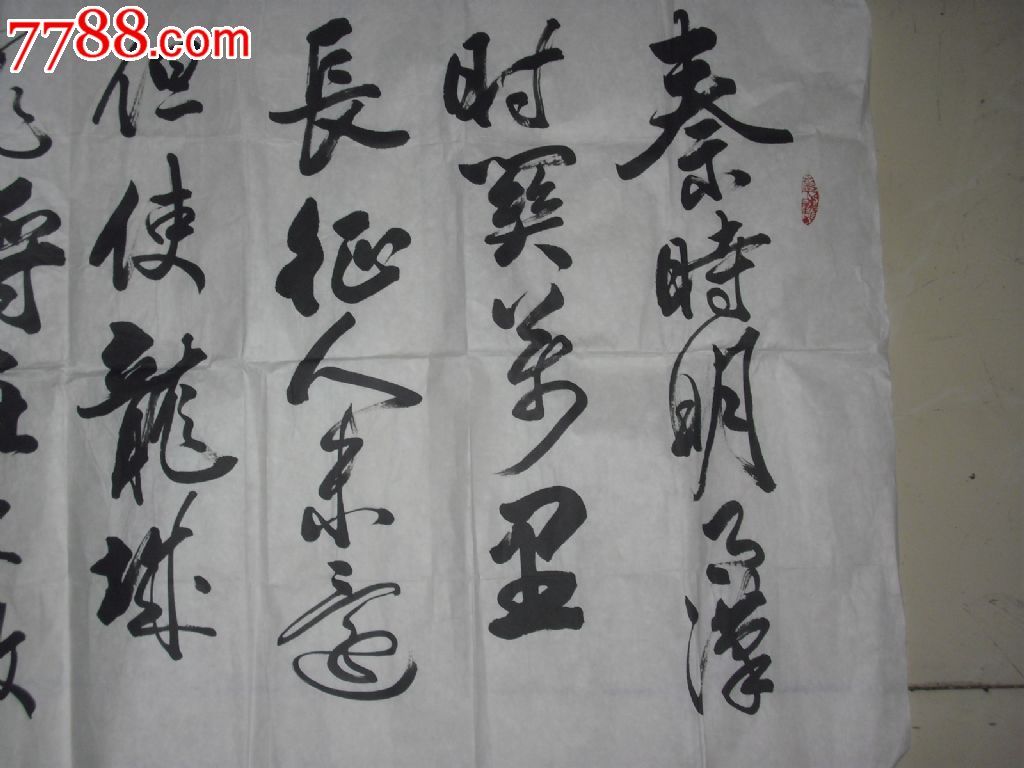 7788.com
秦時明月漢
时関萬里
長征人未還
但使龍城